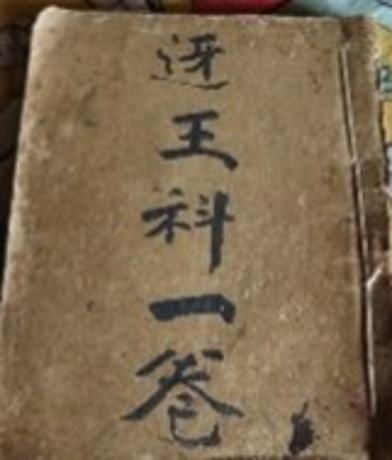 迓王科一卷